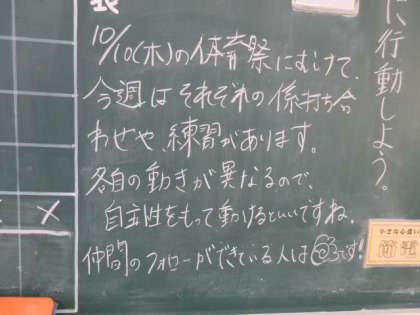 10/10(木)の体育祭にむけて、
今週はそれぞれの係打ち合
わせや、練習があります。
各自の動きが異なるので、
自主性をもって動けるといいですね。
仲間のフォローができている人は◎です!
に行動しよう。
×